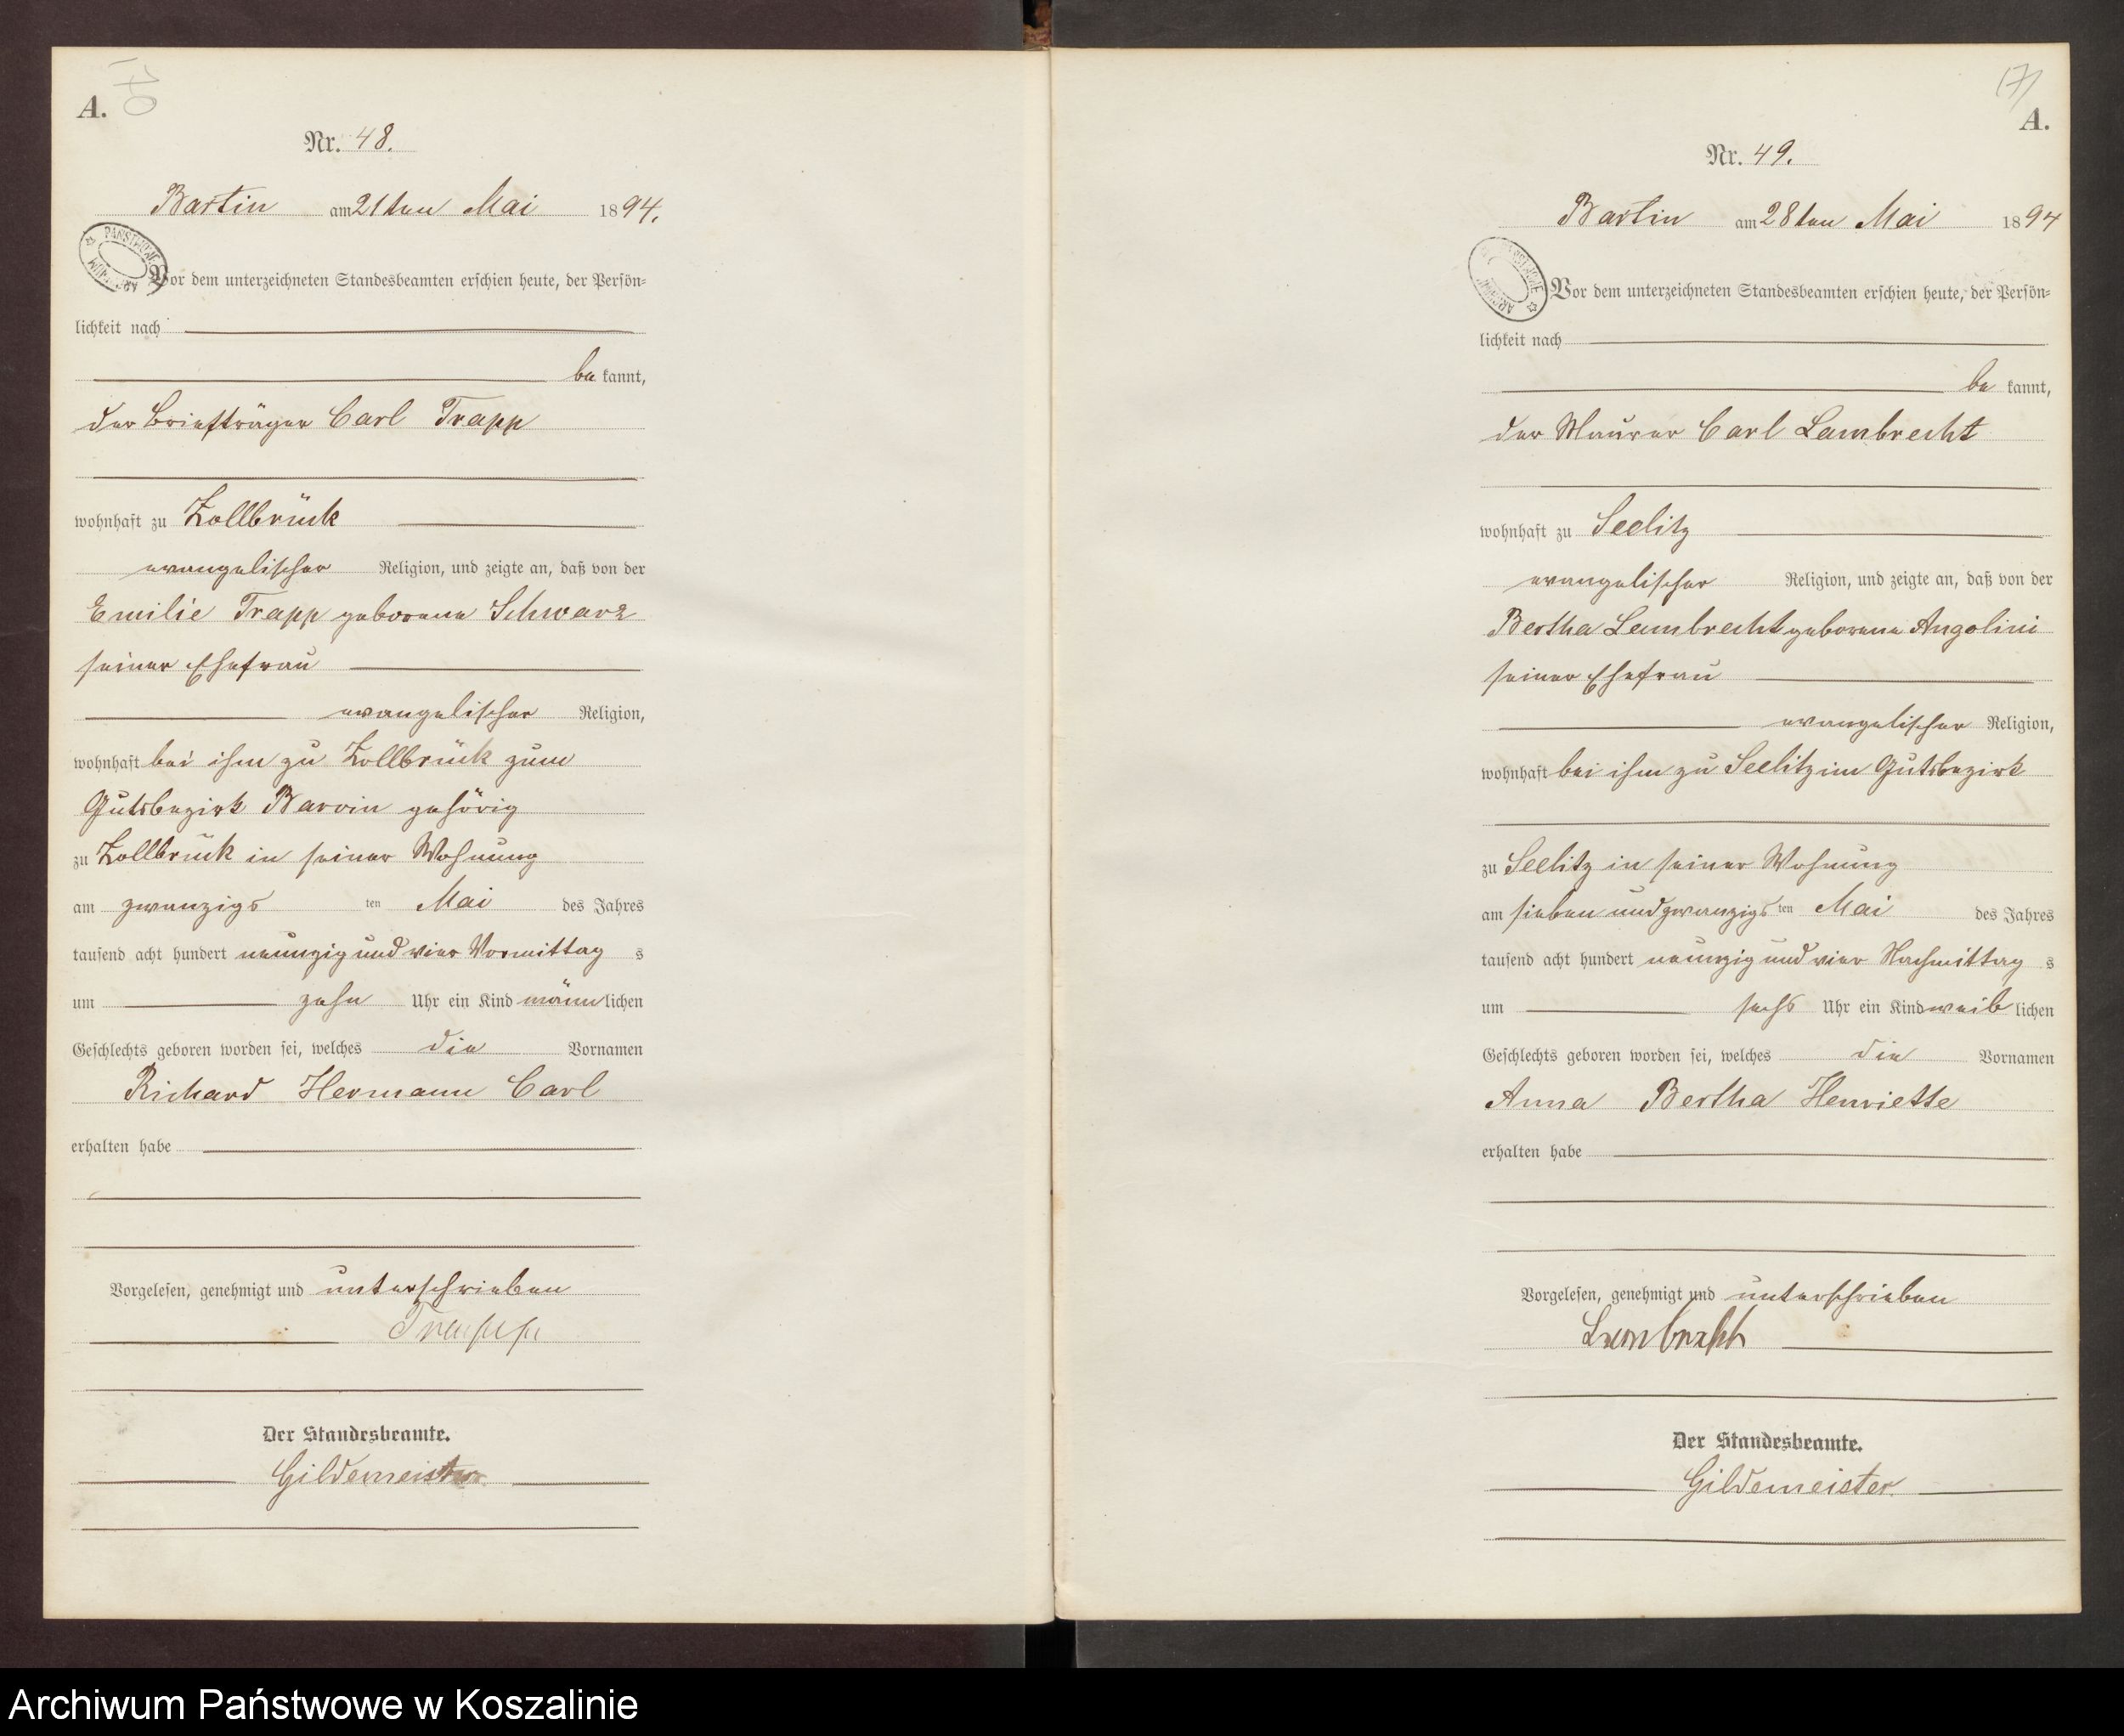 170
A.
Nr. 48.
Bartin am 21ten Mai 1894.
PAŃSTWOWE ARCHIWUM
Vor dem unterzeichneten Standesbeamten erschien heute, der Persön=
lichkeit nach
be kannt,
der Briefträger Carl Trapp
wohnhaft zu Zollbrück
evangelischer Religion, und zeigte an, daß von der
Emilie Trapp geborene Schwarz
seiner Ehefrau
evangelischer Religion,
wohnhaft bei ihm zu Zollbrück zum
Gutsbezirk Barvin gehörig
zu Zollbrück in seiner Wohnung
am zwanzigs ten Mai des Jahres
tausend acht hundert neunzig und vier Vormittag s
um zehn Uhr ein Kind männ lichen
Geschlechts geboren worden sei, welches die Vornamen
Richard Hermann Carl
erhalten habe
Vorgelesen, genehmigt und unterschrieben
Trapp
Der Standesbeamte.
Gildemeister
171
A.
Nr. 49.
Bartin am 28ten Mai 1894
Vor dem unterzeichneten Standesbeamten erschien heute, der Persön=
lichkeit nach
be kannt,
der Maurer Carl Lambrecht
wohnhaft zu Seelitz
evangelischer Religion, und zeigte an, daß von der
Bertha Lambrecht geborene Angolini
seiner Ehefrau
evangelischer Religion,
wohnhaft bei ihm zu Seelitz im Gutsbezirk
zu Seelitz in seiner Wohnung
am sieben und zwanzigs ten Mai des Jahres
tausend acht hundert neunzig und vier Nachmittag s
um sechs Uhr ein Kind weib lichen
Geschlechts geboren worden sei, welches die Vornamen
Anna Bertha Henriette
erhalten habe
Vorgelesen, genehmigt und unterschrieben
Lambrecht
Der Standesbeamte.
Gildemeister.
Archiwum Państwowe w Koszalinie